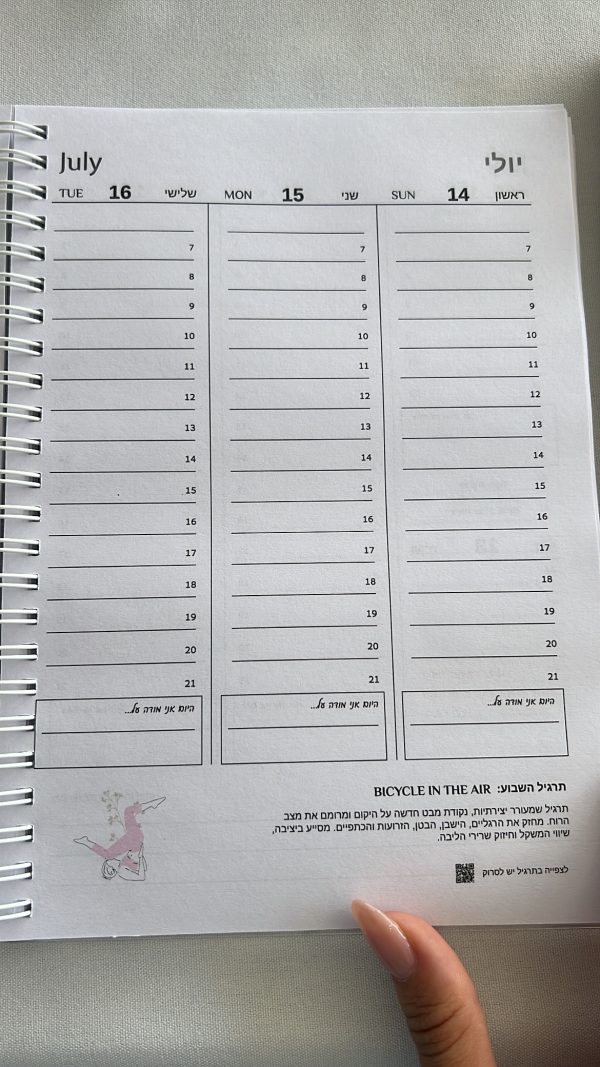 יולי July
ראשון 14 SUN
7
8
9
10
11
12
13
14
15
16
17
18
19
20
21
היום אני מודה על...
שני 15 MON
7
8
9
10
11
12
13
14
15
16
17
18
19
20
21
היום אני מודה על...
שלישי 16 TUE
7
8
9
10
11
12
13
14
15
16
17
18
19
20
21
היום אני מודה על...
תרגיל השבוע: BICYCLE IN THE AIR
תרגיל שמעורר יצירתיות, נקודת מבט חדשה על היקום ומרומם את מצב
הרוח. מחזק את הרגליים, הישבן, הבטן, הזרועות והכתפיים. מסייע ביציבה,
שיווי המשקל וחיזוק שרירי הליבה.
לצפייה בתרגיל יש לסרוק